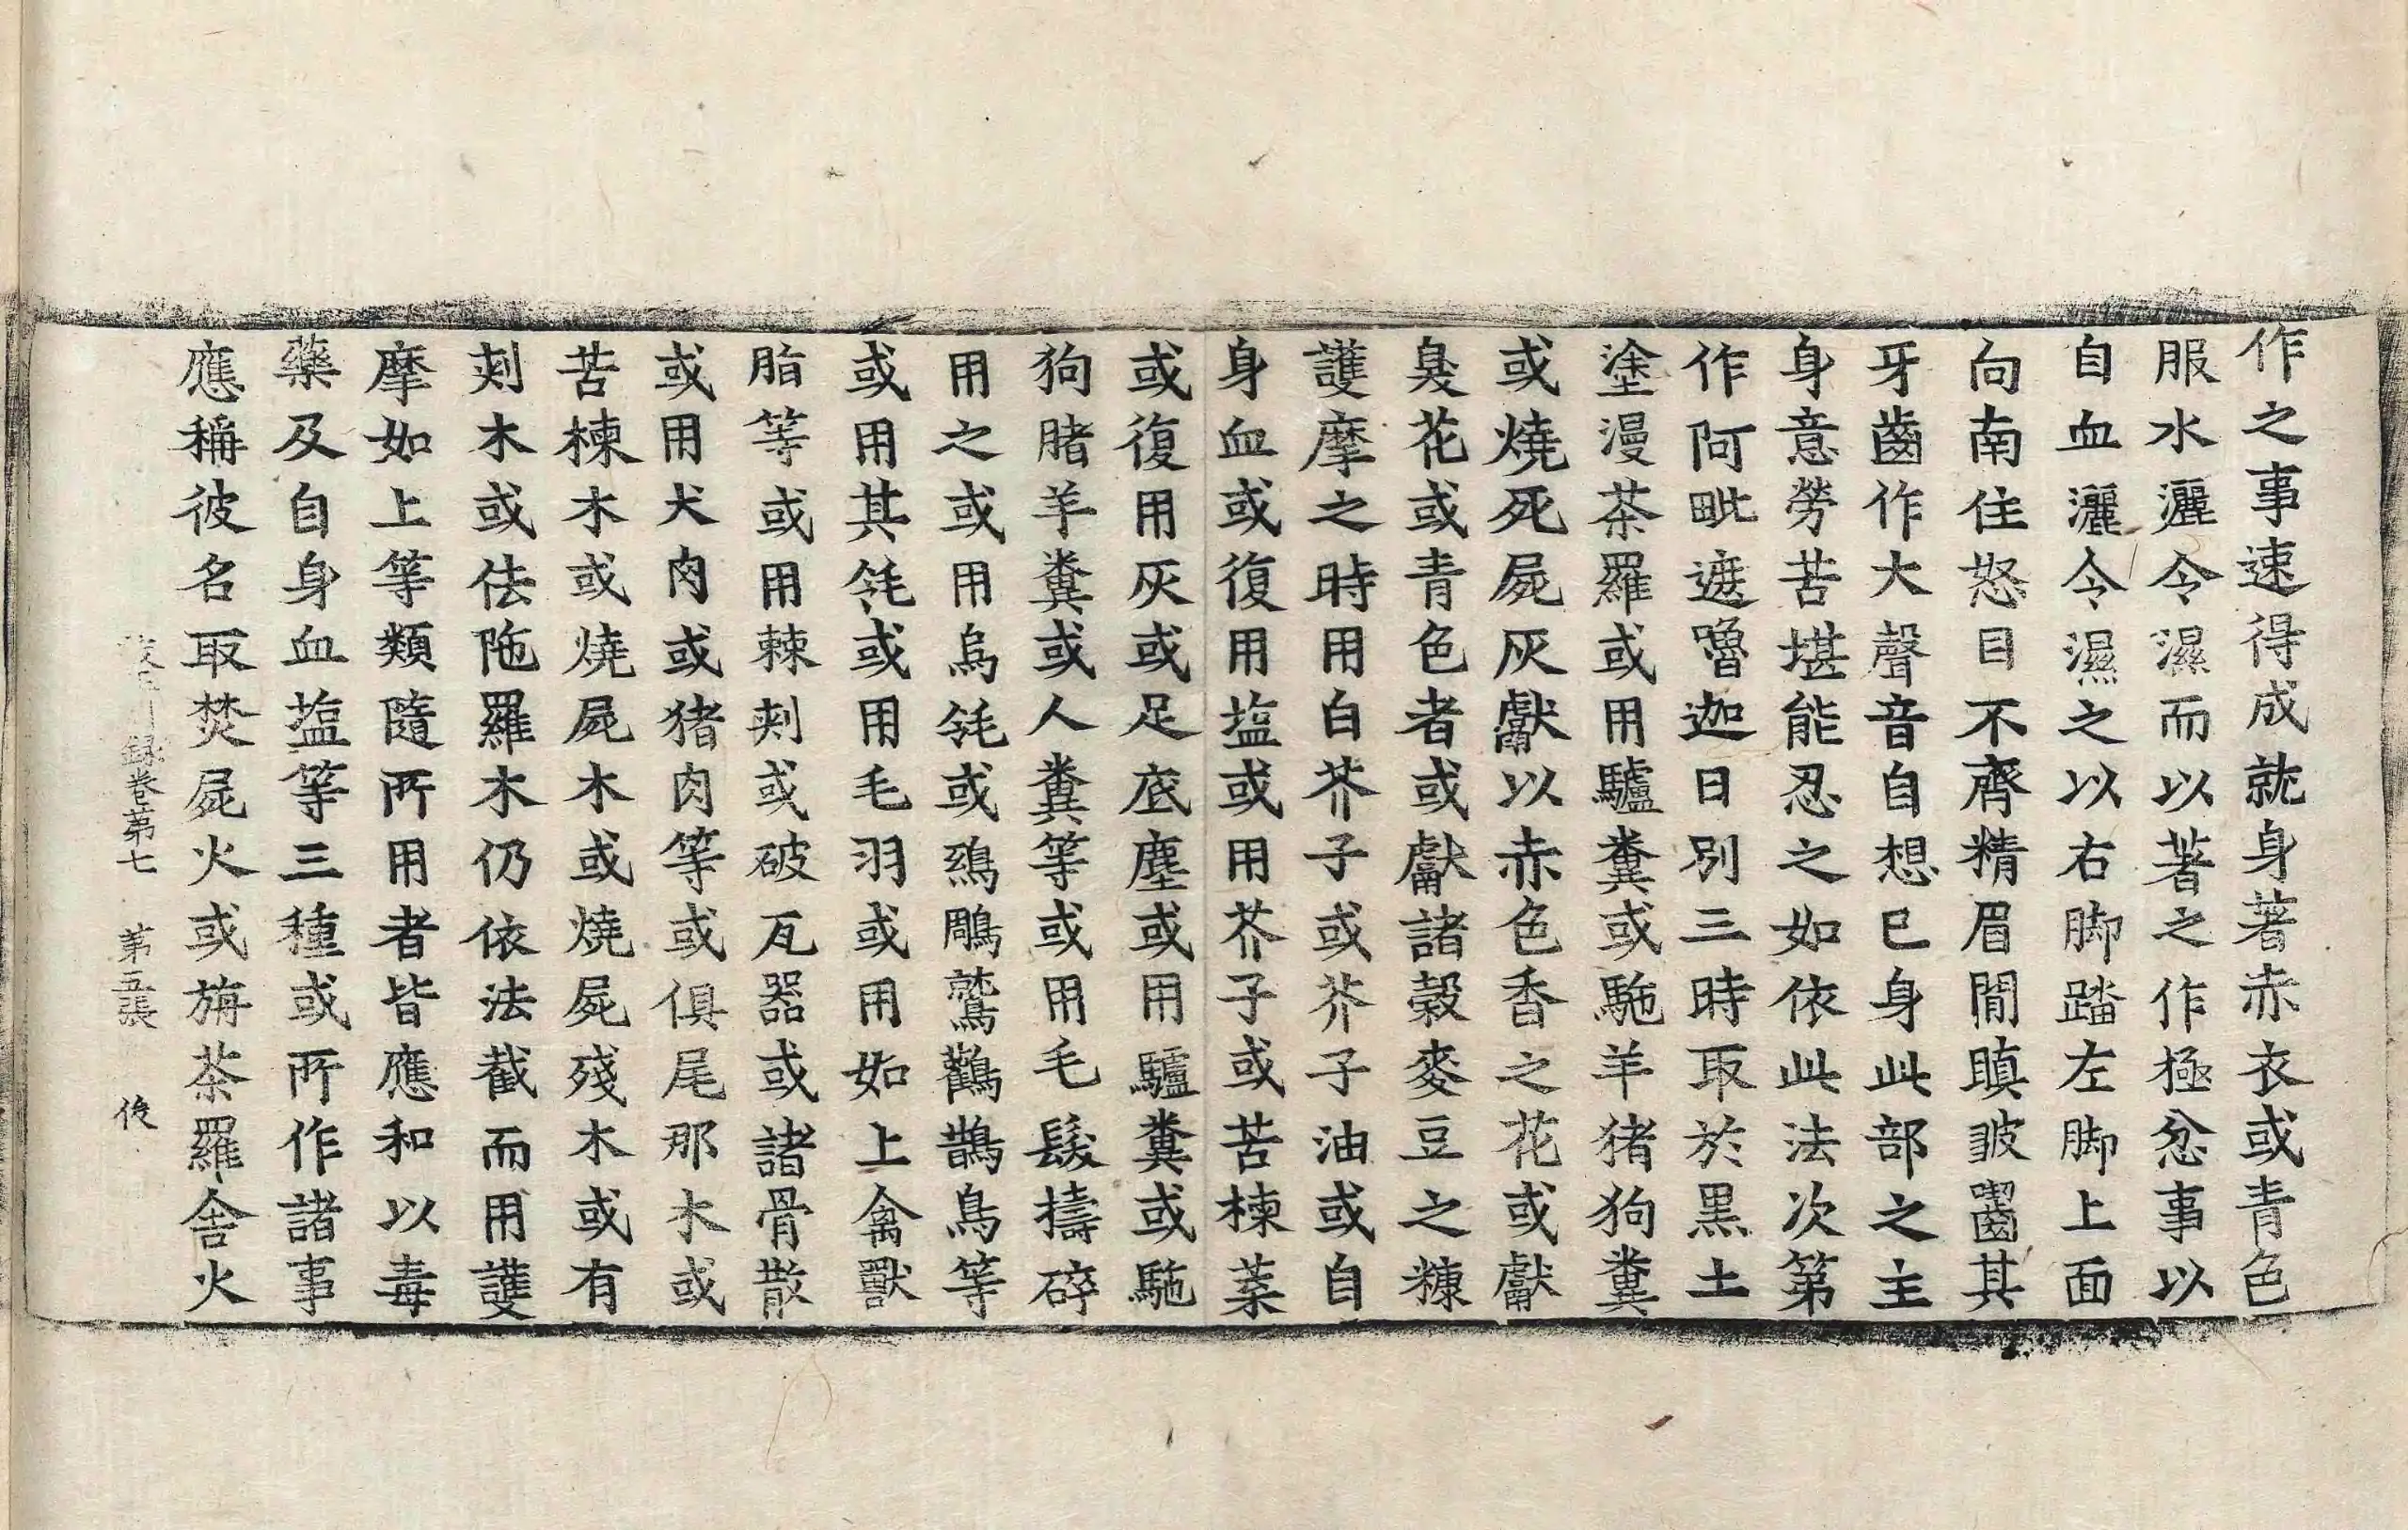 作之事速得成就身著赤衣或青色
服水灑令濕而以著之作極忿事以
自血灑令濕之以右脚踏左脚上面
向南住怒目不齊精眉間瞋皺齧其
牙齒作大聲音自想己身此部之主
身意勞苦堪能忍之如依此法次第
作阿毗遮嚕迦日別三時取於黑土
塗漫茶羅或用驢糞或駞羊猪狗糞
或燒死屍灰獻以赤色香之花或獻
臭花或青色者或獻諸穀麥豆之糠
護摩之時用白芥子或芥子油或自
身血或復用塩或用芥子或苦楝葉
或復用灰或足底塵或用驢糞或駞
狗賭羊糞或人糞等或用毛髮擣碎
用之或用烏毦或鵄鵰鷲鸛鵲鳥等
或用其毦或用毛羽或用如上禽獸
脂等或用棘刺或破瓦器或諸骨散
或用犬肉或猪肉等或俱尾那木或
苦楝木或燒屍木或燒屍殘木或有
刺木或佉陁羅木仍依法截而用護
摩如上等類隨所用者皆應和以毒
藥及自身血塩等三種或所作諸事
應稱彼名取焚屍火或旃茶羅舍火
録卷第七　第五張　後